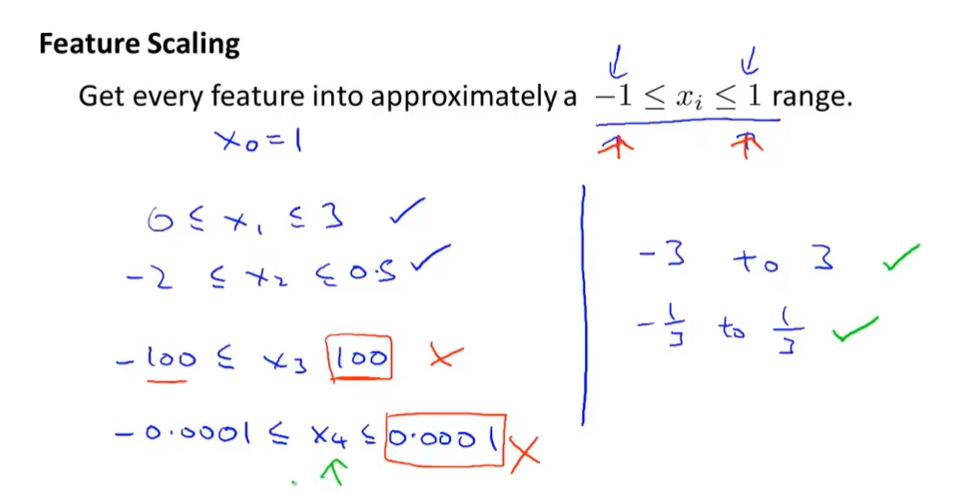 Feature Scaling
Get every feature into approximately a −1 ≤ xᵢ ≤ 1 range.
x₀ = 1
0 ≤ x₁ ≤ 3 ✓
-2 ≤ x₂ ≤ 0.5 ✓
-100 ≤ x₃ 100 ✗
-0.0001 ≤ x₄ ≤ 0.0001 ✗
-3 to 3 ✓
-1/3 to 1/3 ✓